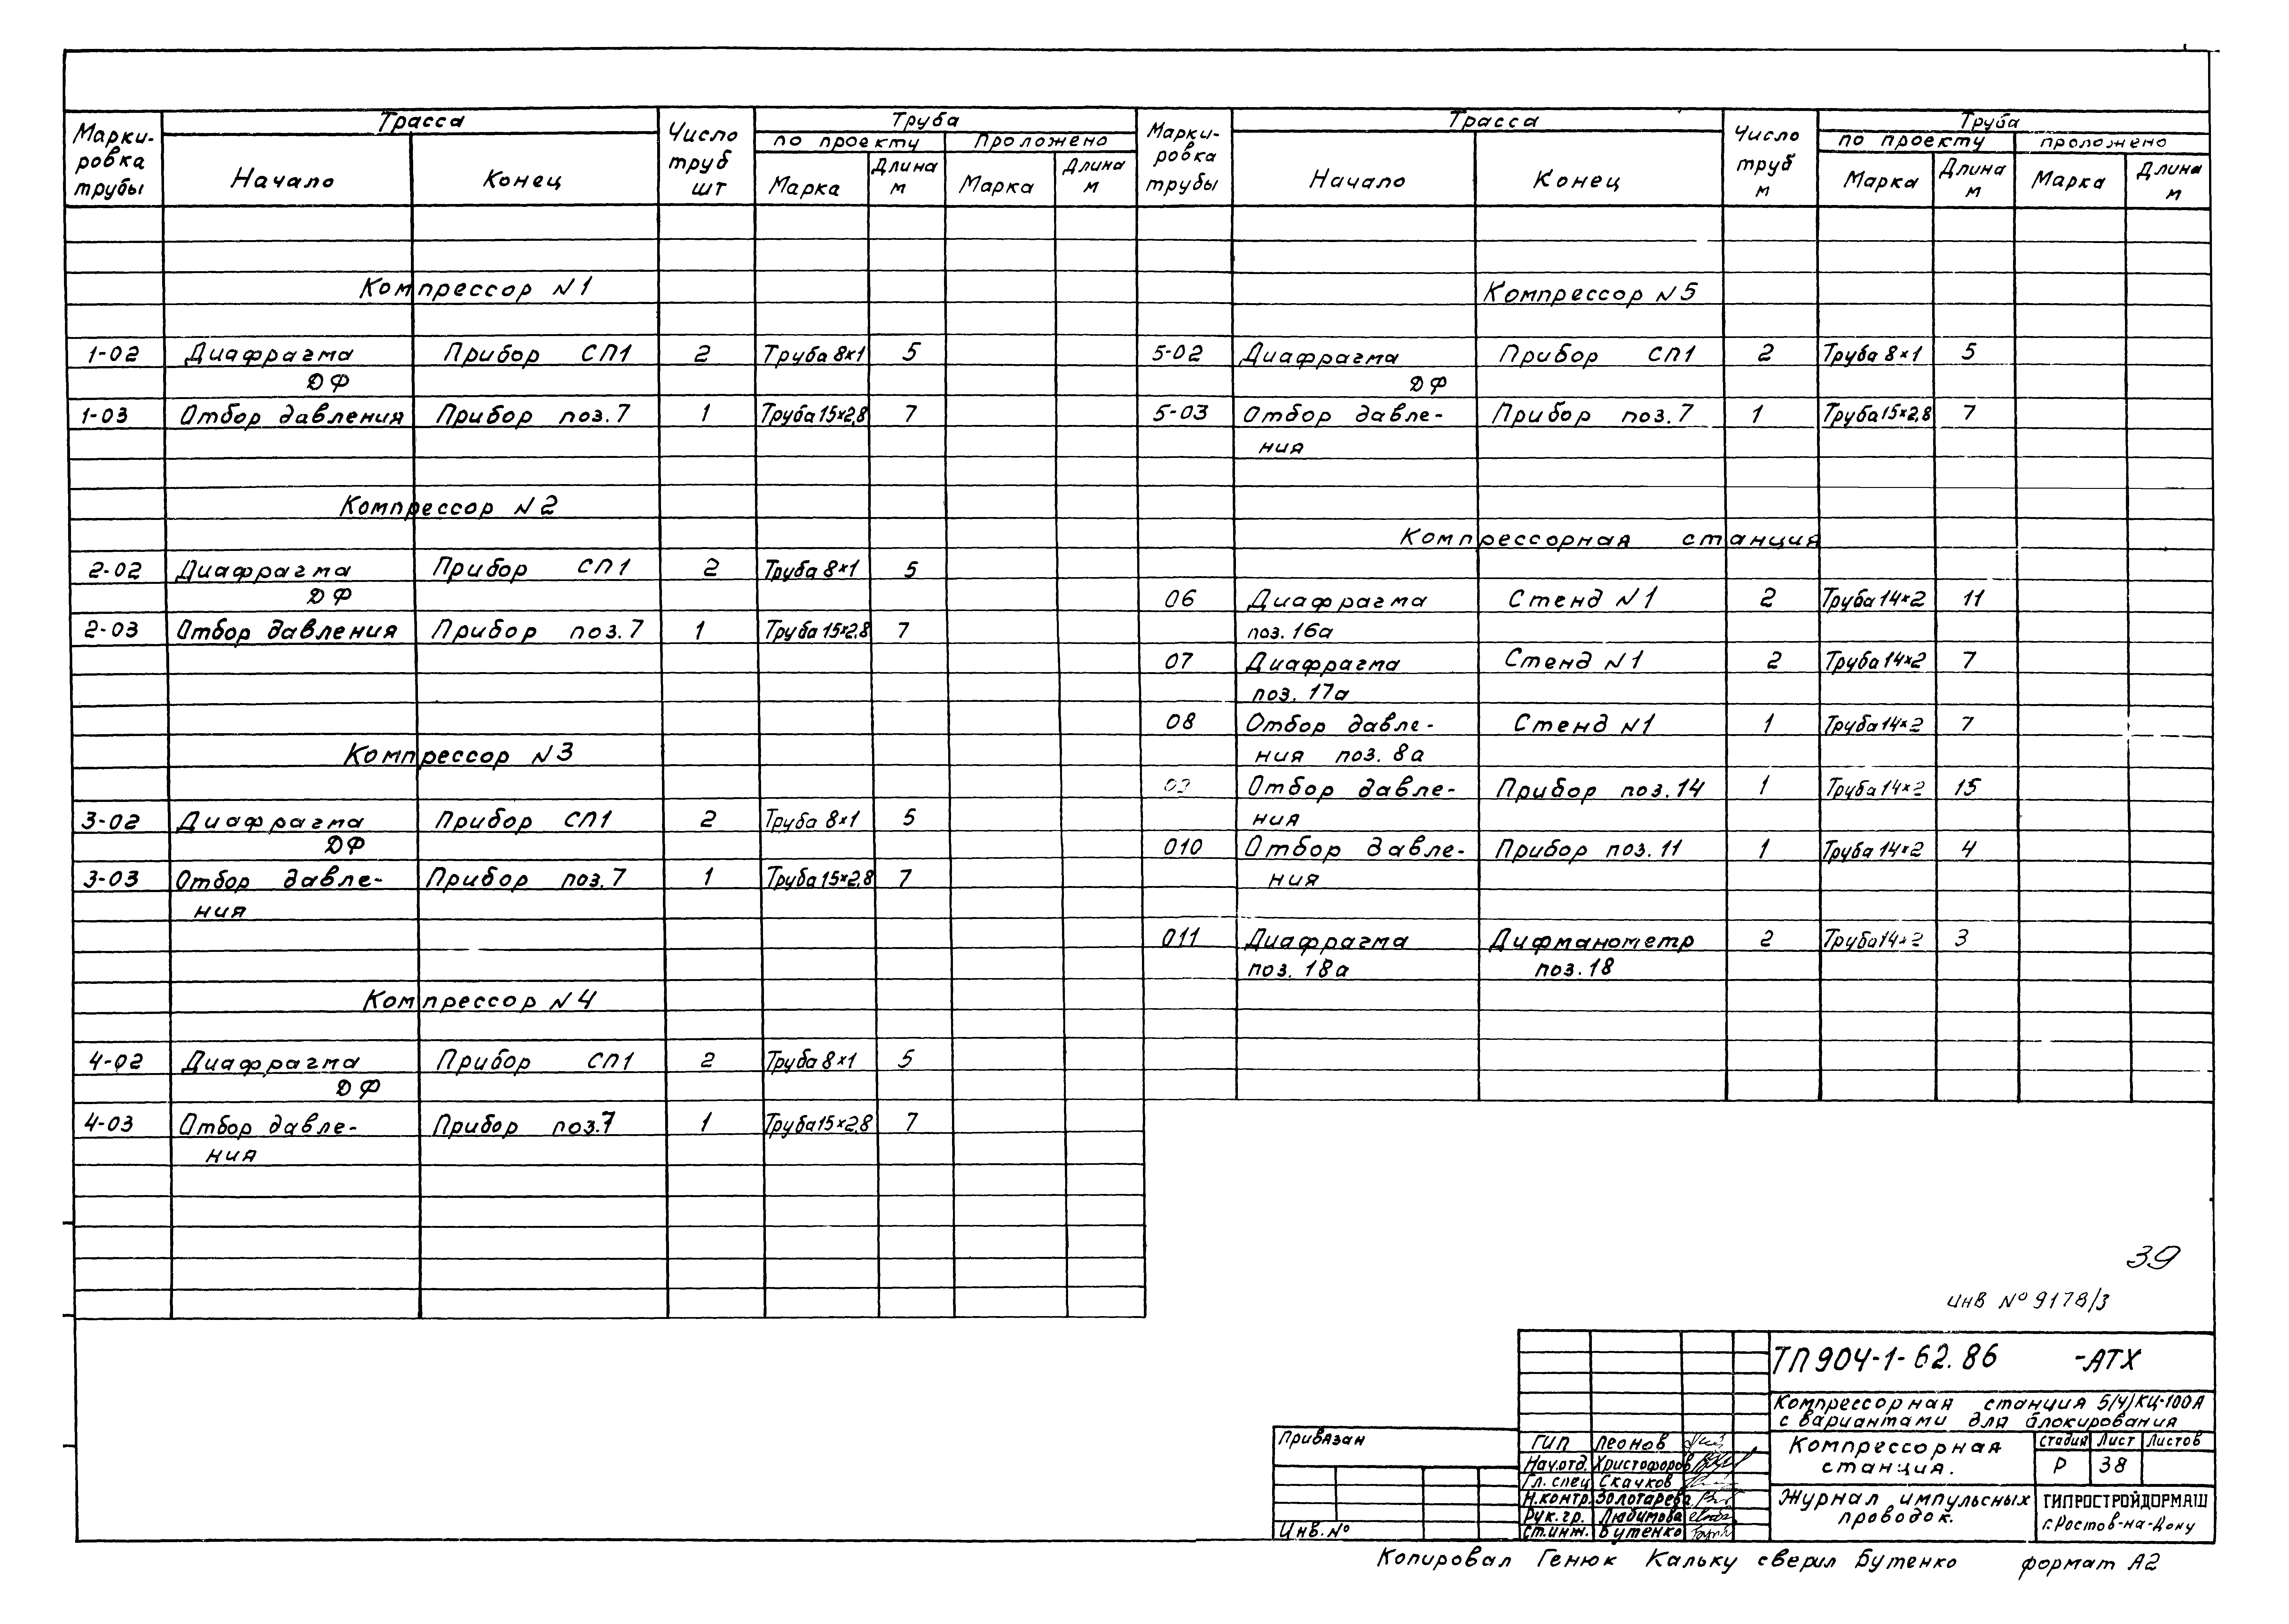 Марки-
ровка
трубы
Трасса
Начало
Конец
Число
труб
шт
Труба
по проекту
Проложено
Марка
Длина
м
Марка
Длина
м
Компрессор N1
1-02 Диафрагма Прибор СП1 2 Труба 8×1 5
ДФ
1-03 Отбор давления Прибор поз.7 1 Труба 15×2,8 7
Компрессор N2
2-02 Диафрагма Прибор СП1 2 Труба 8×1 5
ДФ
2-03 Отбор давления Прибор поз.7 1 Труба 15×2,8 7
Компрессор N3
3-02 Диафрагма Прибор СП1 2 Труба 8×1 5
ДФ
3-03 Отбор давле- Прибор поз.7 1 Труба 15×2,8 7
ния
Компрессор N4
4-02 Диафрагма Прибор СП1 2 Труба 8×1 5
ДФ
4-03 Отбор давле- Прибор поз.7 1 Труба 15×2,8 7
ния
Марки-
ровка
трубы
Трасса
Начало
Конец
Число
труб
м
Труба
по проекту
проложено
Марка
Длина
м
Марка
Длина
м
Компрессор N5
5-02 Диафрагма Прибор СП1 2 Труба 8×1 5
ДФ
5-03 Отбор давле- Прибор поз.7 1 Труба 15×2,8 7
ния
Компрессорная станция
06 Диафрагма Стенд N1 2 Труба 14×2 11
поз. 16а
07 Диафрагма Стенд N1 2 Труба 14×2 7
поз. 17а
08 Отбор давле- Стенд N1 1 Труба 14×2 7
ния поз. 8а
Отбор давле- Прибор поз.14 1 Труба 14×2 15
ния
010 Отбор давле- Прибор поз.11 1 Труба 14×2 4
ния
011 Диафрагма Дифманометр 2 Труба 14×2 3
поз. 18а поз.18
39
инв Nº 9178/3
ТП 904-1-62.86 -АТХ
Компрессорная станция 5/4/КЦ-100А
с вариантами для блокирования
Компрессорная
станция.
Стадия Лист Листов
Р 38
Журнал импульсных
проводок.
ГИПРОСТРОЙДОРМАШ
г.Ростов-на-Дону
Привязан
Инв.Nº
ГИП Леонов
Нач.отд. Христофоров
Гл. спец Скачков
Н.контр. Золотарева
Рук.гр. Любимова
Ст.инж. Бутенко
Копировал Генюк Кальку сверил Бутенко формат А2